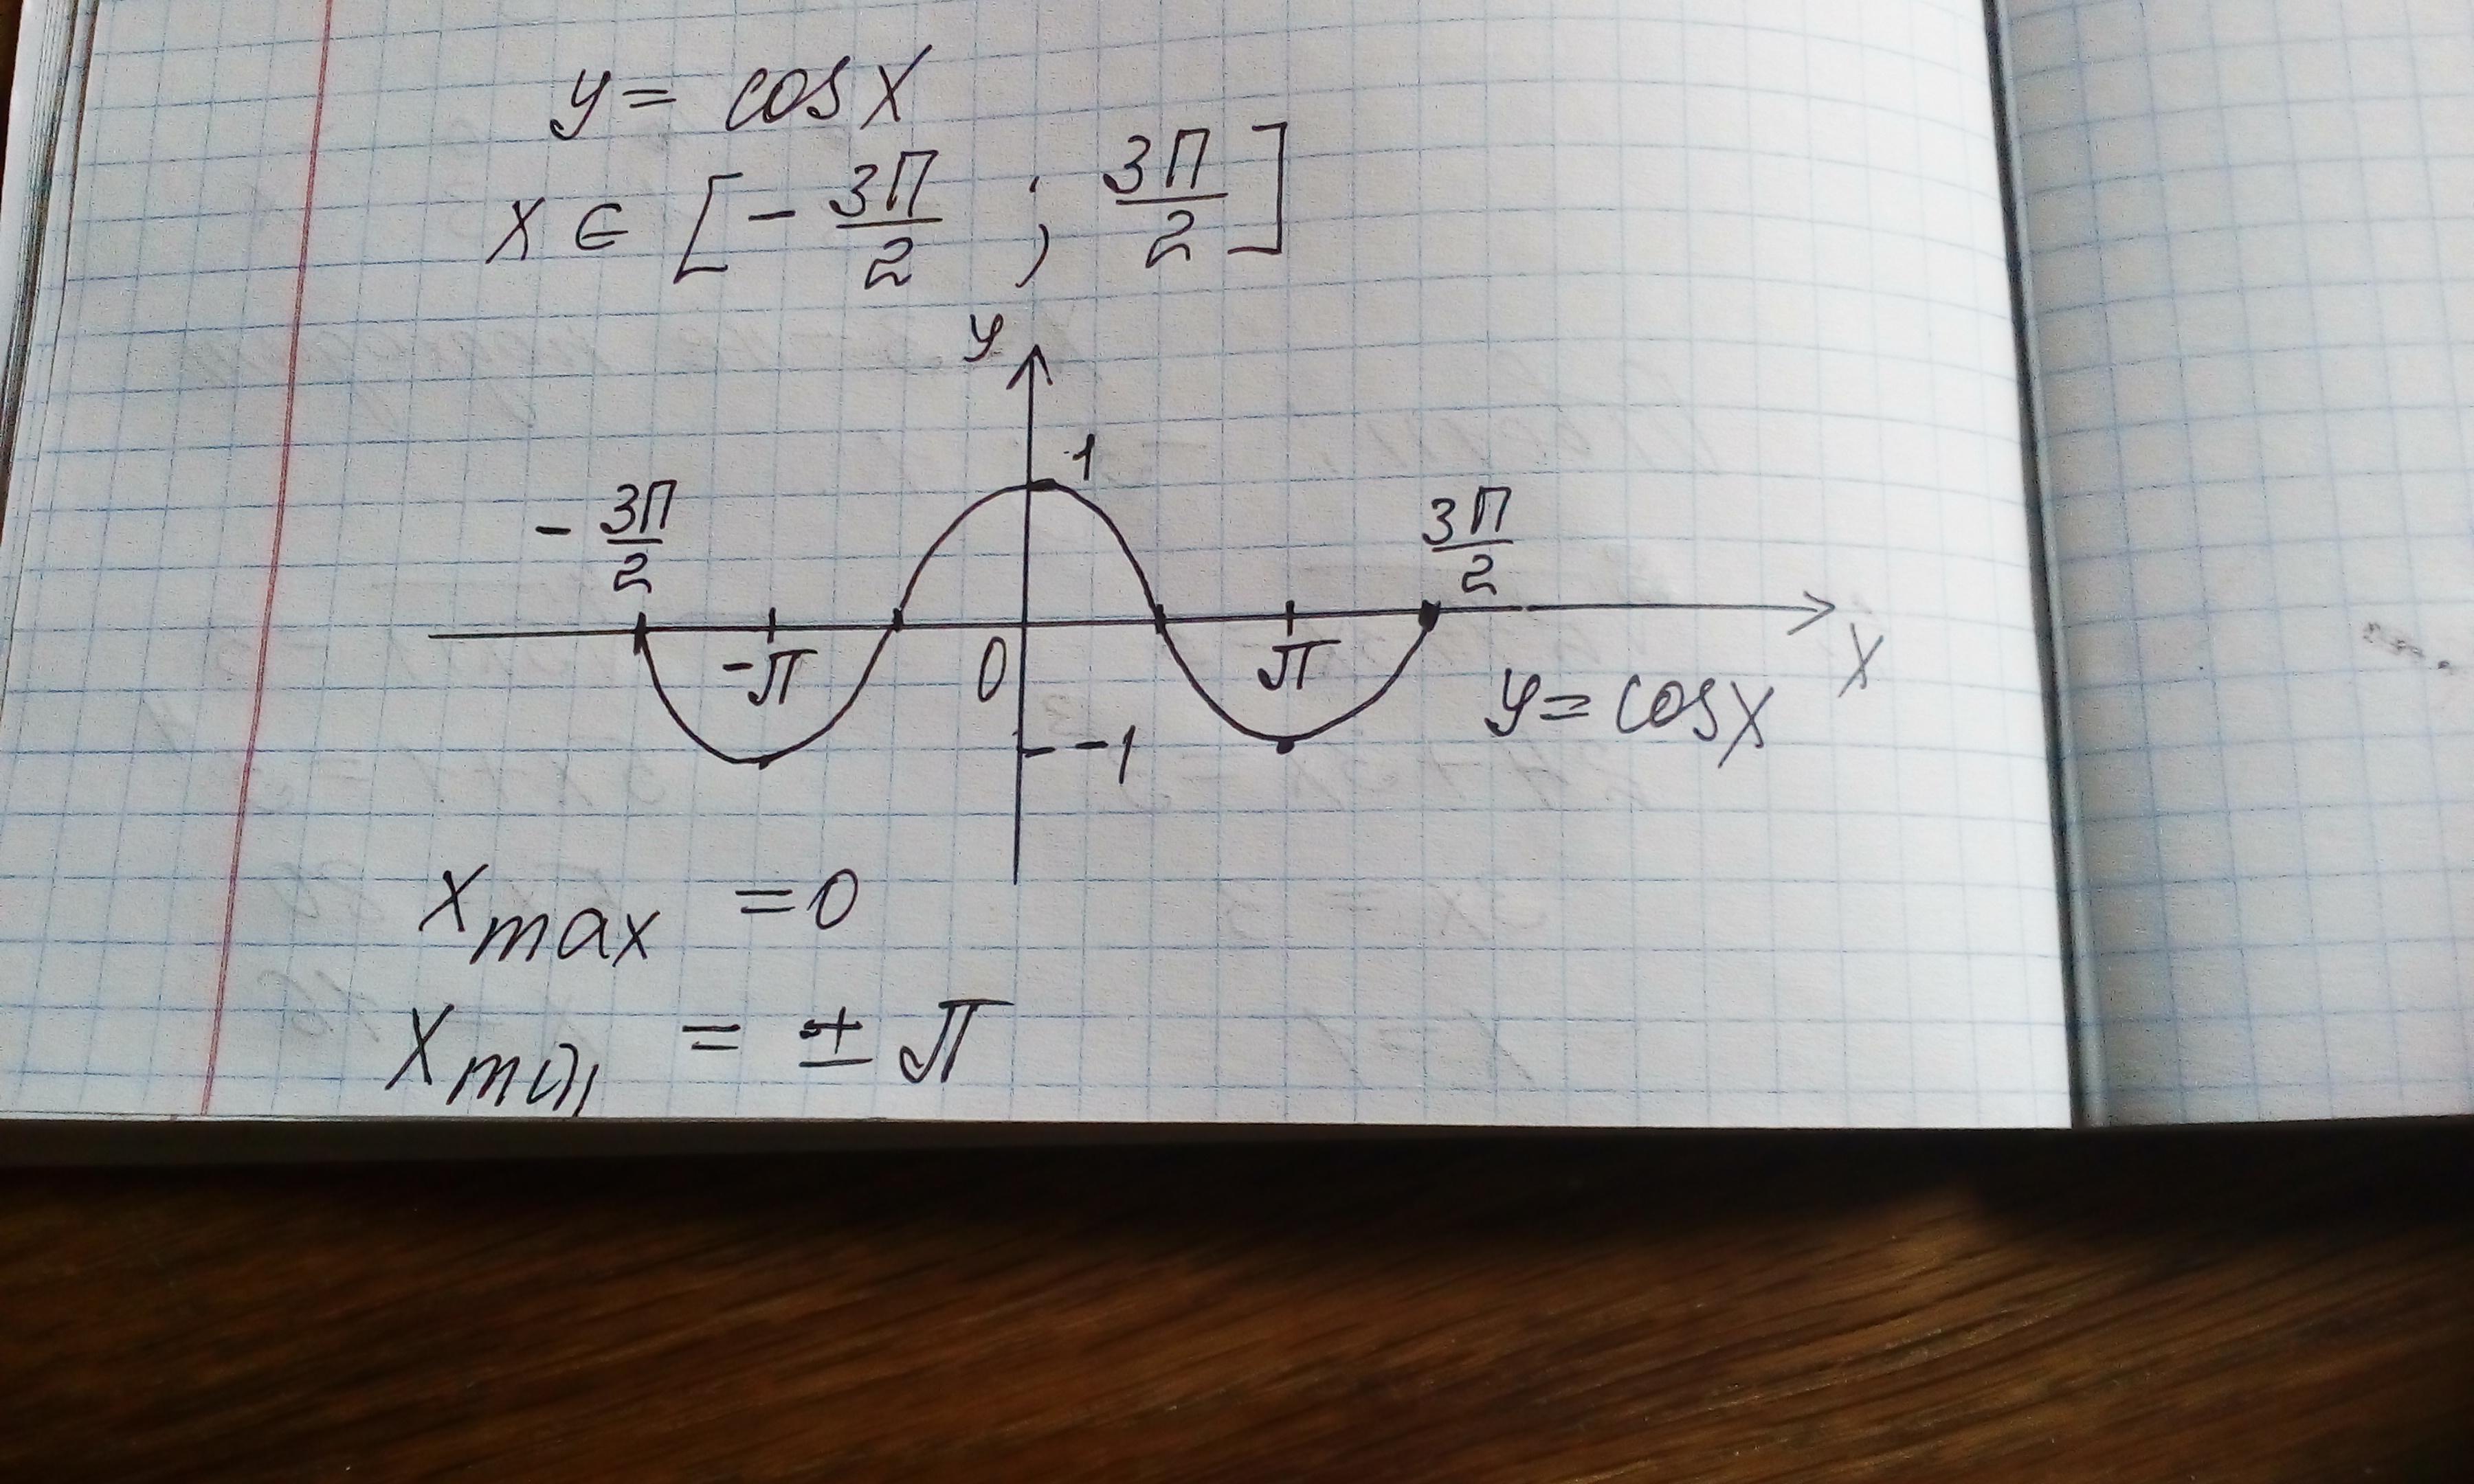 y = cos x
x ∈ [-3π/2 ; 3π/2]
y
1
-3π/2
3π/2
-π
0
π
x
y = cos x
-1
x max = 0
x min = ± π